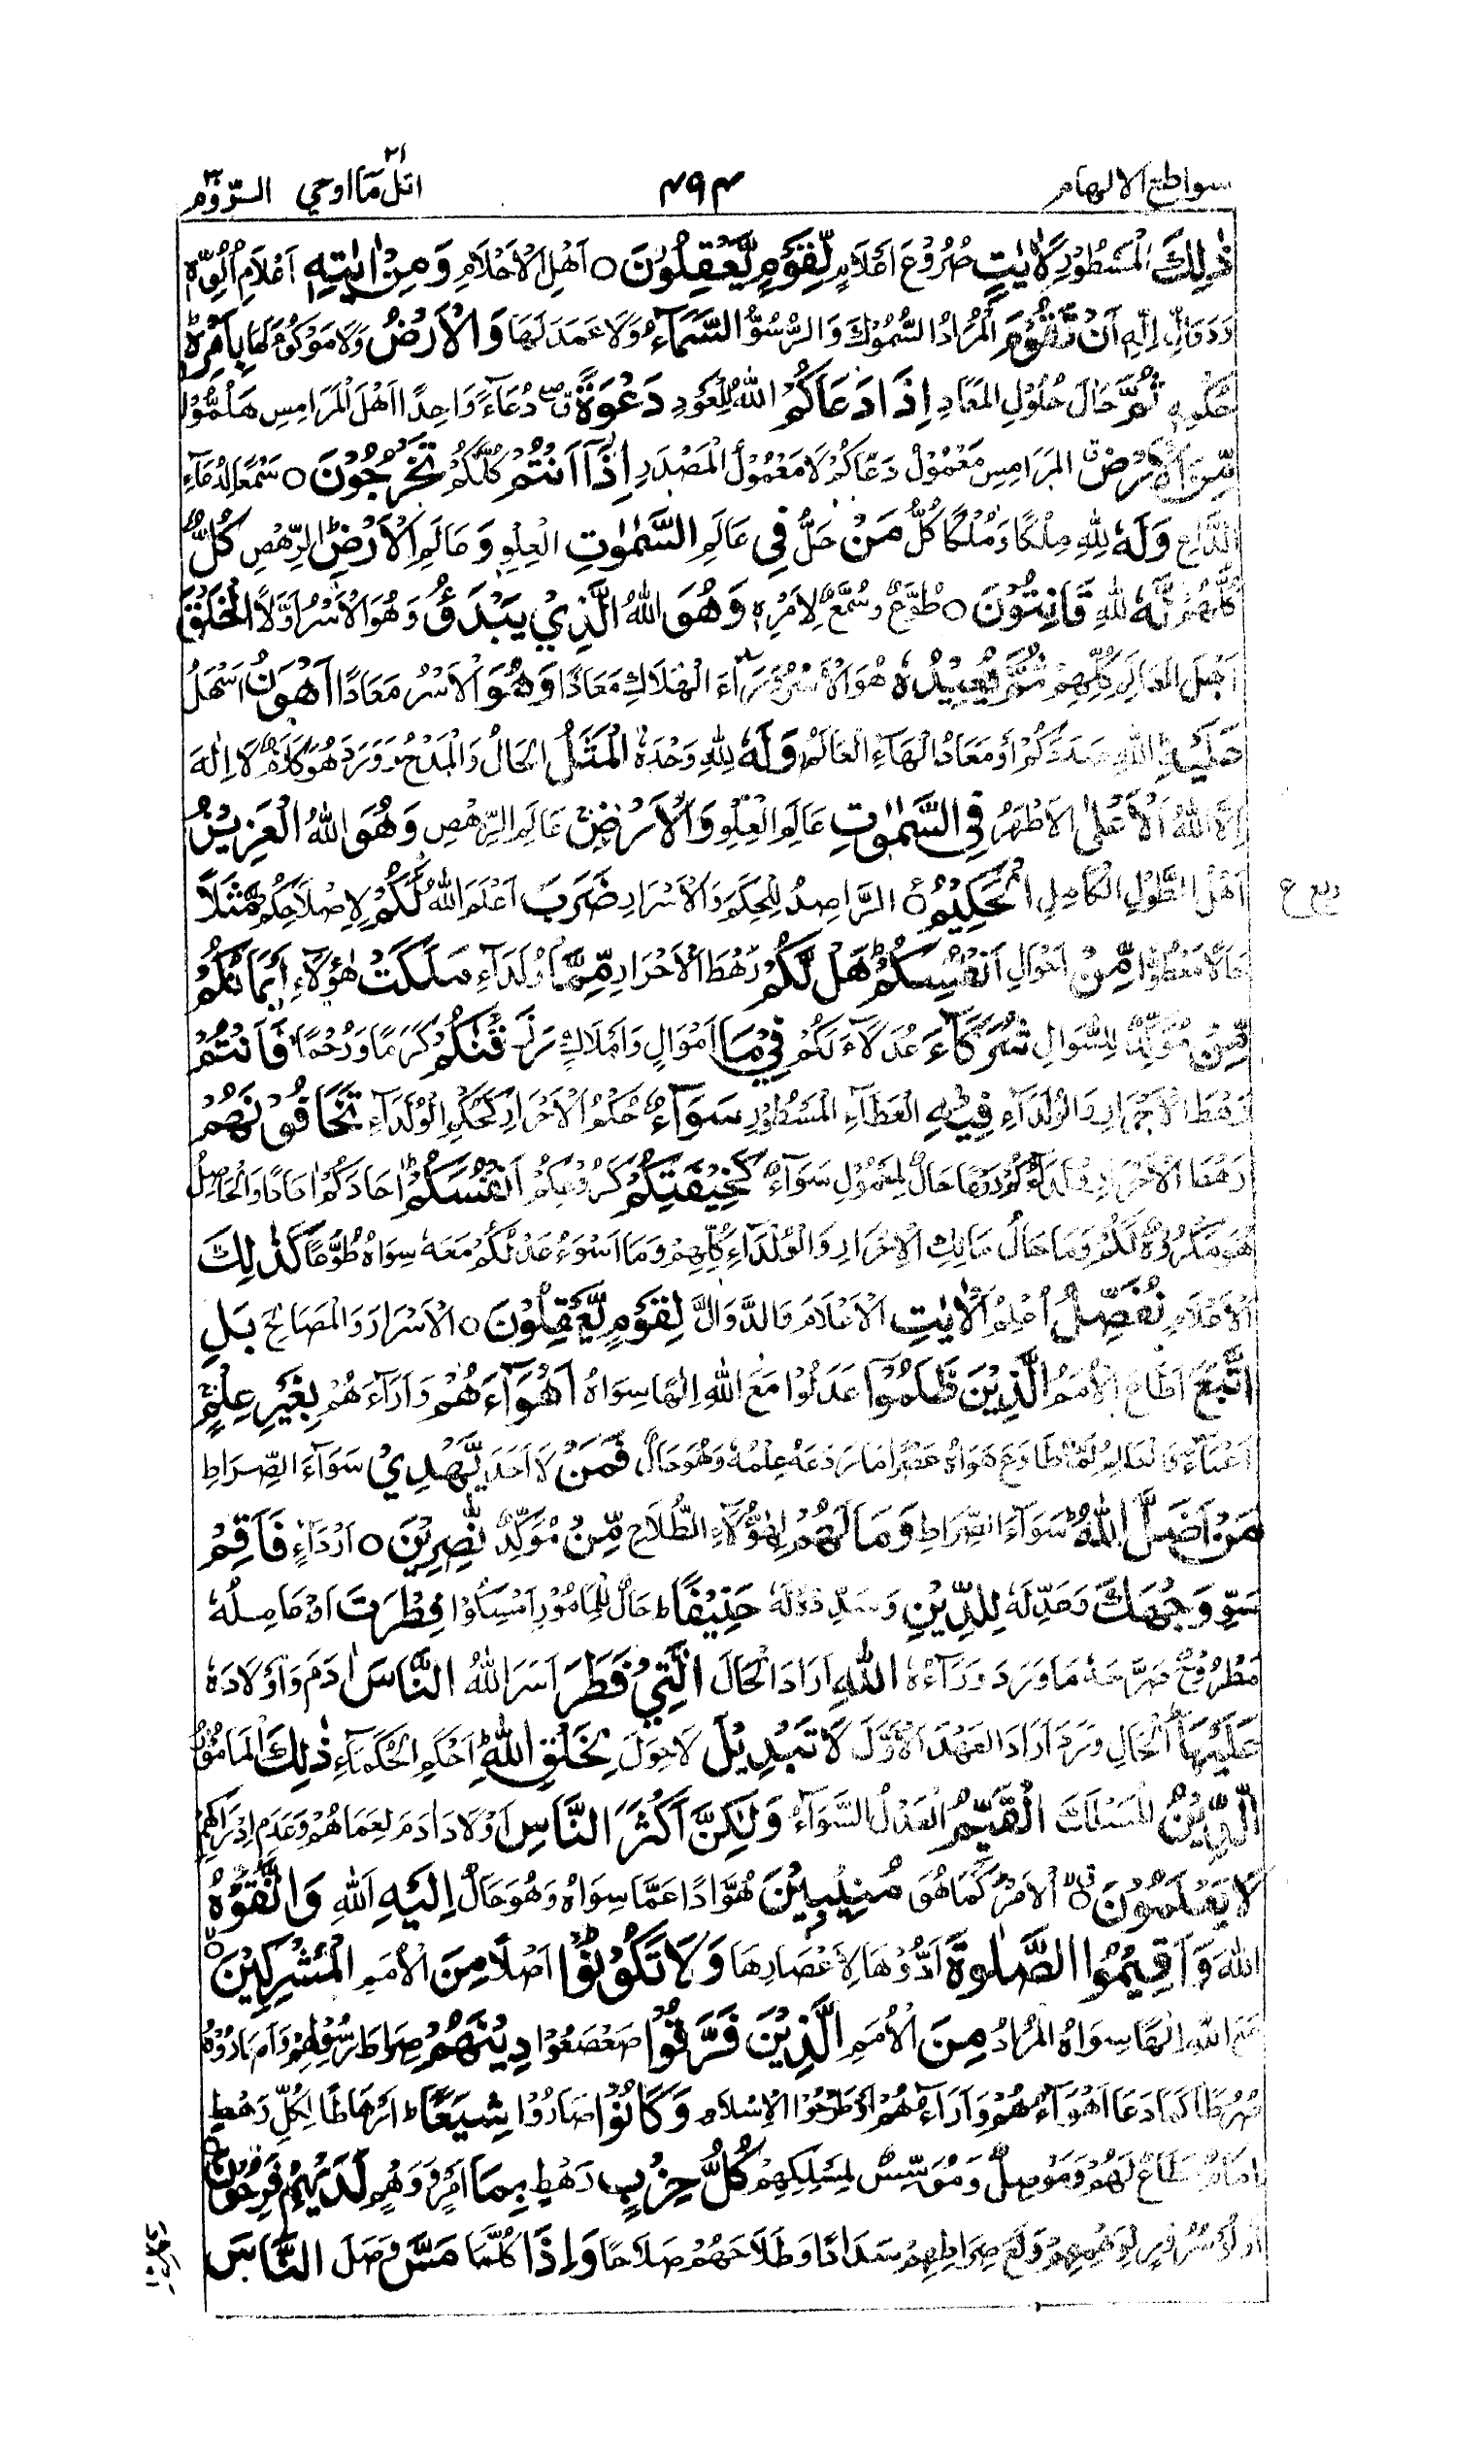 سواطع الالهام ۴۹۴ اتل ما اوحي ۲۱ الروم ۳۰
ذٰلِكَ الْمَسْطُوْرِ لَاٰيٰتٍ صُرُوْعَ اَعْلَامٍ لِّقَوْمٍ يَّعْقِلُوْنَ ○ اَهْلِ الْاَحْلَامِ وَمِنْ اٰيٰتِهٖ اَعْلَامِ اُلُوِّهٖ
وَدَوَالِّ اِلِّهٖ اَنْ تَقُوْمَ الْمُرَادُ السُّمُوْكُ وَالرُّسُوُّ السَّمَآءُ وَلَا عَمَدَ لَهَا وَالْاَرْضُ وَلَا مَوْكُوْمَ لَهَا بِاَمْرِهٖ
حُكْمِهٖ ثُمَّ حَالَ حُلُوْلِ الْمَعَادِ اِذَا دَعَاكُمْ اللّٰهُ لِلْعَوْدِ دَعْوَةً دُعَآءً وَاحِدًا اَهْلَ الْمَرَامِسِ هَلُمُّوْا
مِّنَ الْاَرْضِ الْمَرَامِسِ مَعْمُوْلُ دَعَاكُمْ لَا مَعْمُوْلُ الْمَصْدَرِ اِذَآ اَنْتُمْ كُلُّكُمْ تَخْرُجُوْنَ ○ سَمْعًا لِدُعَآءِ
الدَّاعِ وَلَهٗ لِلّٰهِ مِلْكًا وَمُلْكًا كُلُّ مَنْ حَلَّ فِي عَالَمِ السَّمٰوٰتِ الْعِلْوِ وَعَالَمِ الْاَرْضِ الرِّهْصِ كُلٌّ
كُلُّهُمْ لَّهٗ لِلّٰهِ قَانِتُوْنَ ○ طُوَّعٌ وَسُمَّعٌ لِاَمْرِهٖ وَهُوَ اللّٰهُ الَّذِيْ يَبْدَؤُ وَهُوَ الْاَسْرُ اَوَّلًا الْخَلْقَ
اَهْلَ الْعَالَمِ كُلِّهِمْ ثُمَّ يُعِيْدُهٗ هُوَ الْاَسْرُ وَرَآءَ الْهَلَاكِ مَعَادًا وَهُوَ الْاَسْرُ مَعَادًا اَهْوَنُ اَسْهَلُ
عَلَيْهِ اللّٰهِ اَوْ مَعَادُ الْهَآءِ الْعَالَمُ وَلَهٗ لِلّٰهِ وَحْدَهٗ الْمَثَلُ الْحَالُ وَالْمَدْحُ وَوَرَدَ هُوَ كَلَامُ لَا اِلٰهَ
اِلَّا اللّٰهُ الْاَعْلٰى الْاَطْهَرُ فِي السَّمٰوٰتِ عَالَمِ الْعِلْوِ وَالْاَرْضِ عَالَمِ الرِّهْصِ وَهُوَ اللّٰهُ الْعَزِيْزُ
اَهْلُ الطَّوْلِ الْكَامِلِ الْحَكِيْمُ ○ الرَّاصِدُ لِلْحِكَمِ وَالْاَسْرَارِ ضَرَبَ اَعْلَمَ اللّٰهُ لَكُمْ لِاِصْلَاحِكُمْ مَّثَلًا
مِّنْ اَحْوَالِ اَنْفُسِكُمْ هَلْ لَّكُمْ رَهْطَ الْاَحْرَارِ مِّنْ مَّا وُلَدَآءَ مَلَكَتْ هٰؤُلَآءِ اَيْمَانُكُمْ
مِّنْ مُؤَكِّدٌ لِلسُّوَالِ شُرَكَآءَ عُدَلَآءَ لَكُمْ فِيْ مَا اَمْوَالٍ وَاَمْلَاكٍ رَزَقْنٰكُمْ كَرَمًا وَرُحْمًا فَاَنْتُمْ
رَهْطَ الْاَحْرَارِ وَالْوُلَدَآءِ فِيْهِ الْعَطَآءِ الْمَسْطُوْرِ سَوَآءٌ حُكْمُ الْاَحْرَارِ كَحُكْمِ الْوُلَدَآءِ تَخَافُوْنَهُمْ
رَهْطَ الْاَحْرَارِ حَالٌ لِمَعْمُوْلِ سَوَآءٌ كَخِيْفَتِكُمْ كَرَوْعِكُمْ اَنْفُسَكُمْ اٰحَادَكُمْ وَالْحَاصِلُ
هُوَ مَكْرُوْهٌ لَكُمْ وَمَا حَالُ مَالِكِ الْاَحْرَارِ وَالْوُلَدَآءِ كُلِّهِمْ وَمَا اَسْوَءَ عَدْلُكُمْ مَعَهٗ سِوَاهُ طُوَّعًا كَذٰلِكَ
الْاَعْلَامِ نُفَصِّلُ اُعْلِمُ الْاٰيٰتِ الْاَعْلَامَ وَالدَّوَالَّ لِقَوْمٍ يَّعْقِلُوْنَ ○ الْاَسْرَارَ وَالْمَصَالِحَ بَلِ
اتَّبَعَ اَطَاعَ الْاُمَمُ الَّذِيْنَ ظَلَمُوْا عَدَلُوْا مَعَ اللّٰهِ اِلٰهًا سِوَاهُ اَهْوَآءَهُمْ وَاَرَآءَهُمْ بِغَيْرِ عِلْمٍ
طَاوَعَ هَوَاهُ رَدَعَهٗ عِلْمُهٗ وَهُوَ حَالٌ فَمَنْ لَا اَحَدَ يَّهْدِيْ سَوَآءَ الصِّرَاطِ
مَنْ اَضَلَّ اللّٰهُ سَوَآءَ الصِّرَاطِ وَمَا لَهُمْ لِهٰؤُلَآءِ الطُّلَّاحِ مِّنْ مُؤَكِّدٌ نّٰصِرِيْنَ ○ اَرْدَآءٍ فَاَقِمْ
سَوِّ وَجْهَكَ وَعَدِّلْهُ لِلدِّيْنِ وَسَدِّدْهُ لَهٗ حَنِيْفًا حَالٌ لِلْمَامُوْرِ اَمْسِكُوْا فِطْرَتَ اَوْ عَامِلُهٗ
مَطْرُوْحٌ صَرَّحَهٗ مَا وَرَدَ وَرَآءَهٗ اللّٰهِ اَرَادَ الْحَالَ الَّتِيْ فَطَرَ اَسَرَ اللّٰهُ النَّاسَ اٰدَمَ وَاَوْلَادَهٗ
عَلَيْهَا الْحَالِ وَرَدَ اَرَادَ الْعَهْدَ الْاَوَّلَ لَا تَبْدِيْلَ لَا حِوَلَ لِخَلْقِ اللّٰهِ اَحْكَمِ الْحُكَمَآءِ ذٰلِكَ الْمَامُوْرُ
الدِّيْنُ الْمَسْلَكُ الْقَيِّمُ الْعَدْلُ السَّوَآءُ وَلٰكِنَّ اَكْثَرَ النَّاسِ اَوْلَادِ اٰدَمَ لِعَمَاهُمْ وَعَدَمِ اِدْرَاكِهِمْ
لَا يَعْلَمُوْنَ ○ الْاَمْرَ كَمَا هُوَ مُنِيْبِيْنَ هُوَّادًا عَمَّا سِوَاهُ وَهُوَ حَالٌ اِلَيْهِ اللّٰهِ وَاتَّقُوْهُ
اللّٰهَ وَاَقِيْمُوا الصَّلٰوةَ اَدُّوْهَا لِاَعْصَارِهَا وَلَا تَكُوْنُوْا اَصْلًا مِنَ الْاُمَمِ الْمُشْرِكِيْنَ ○
مَعَ اللّٰهِ اِلٰهًا سِوَاهُ الْمُرَادُ مِنَ الْاُمَمِ الَّذِيْنَ فَرَّقُوْا صَعْصَعُوْا دِيْنَهُمْ صِرَاطَ رُسُلِهِمْ وَاَصَارُوْهُ
صُرُطًا كَمَا دَعَا اَهْوَآءُهُمْ وَاَرَآءُهُمْ اَوْ طَرَحُوا الْاِسْلَامَ وَكَانُوْا صَارُوْا شِيَعًا اَرْهَاطًا لِكُلِّ رَهْطٍ
اِمَامٌ مُطَاعٌ لَهُمْ وَمُؤَسِّسٌ لِمَسْلَكِهِمْ كُلُّ حِزْبٍ رَهْطٍ بِمَا اَمْرٍ وَوَهْمٍ لَدَيْهِمْ فَرِحُوْنَ
صِرَاطِهِمْ سَدَادًا وَطَلَاحَهُمْ صَلَاحًا وَاِذَا كُلَّمَا مَسَّ وَصَلَ النَّاسَ